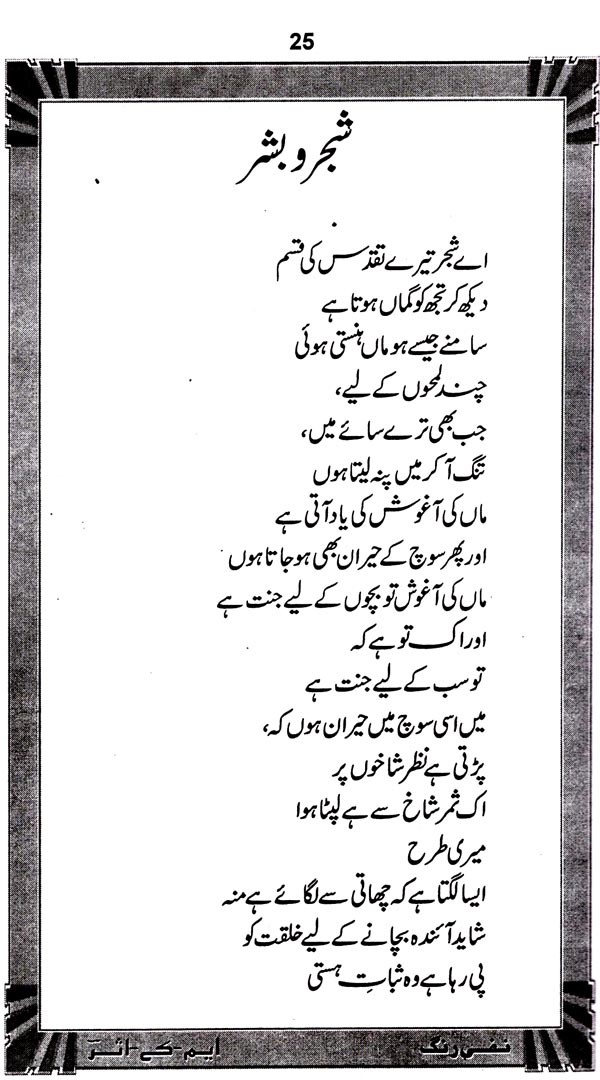 25
شجر و بشر
اے شجر تیرے تقدّس کی قسم
دیکھ کر تجھ کو گماں ہوتا ہے
سامنے جیسے ہو ماں ہنستی ہوئی
چند لمحوں کے لیے،
جب بھی ترے سائے میں،
تنگ آ کر میں پنہ لیتا ہوں
ماں کی آغوش کی یاد آتی ہے
اور پھر سوچ کے حیران بھی ہو جاتا ہوں
ماں کی آغوش تو بچوں کے لیے جنت ہے
اور اک تو ہے کہ
تو سب کے لیے جنت ہے
میں اسی سوچ میں حیران ہوں کہ،
پڑتی ہے نظر شاخوں پر
اک ثمر شاخ سے ہے لپٹا ہوا
میری طرح
ایسا لگتا ہے کہ چھاتی سے لگائے ہے منہ
شاید آئندہ بچانے کے لیے خلقت کو
پی رہا ہے وہ ثباتِ ہستی
نفی رنگ
ایم-کے-اثرؔ